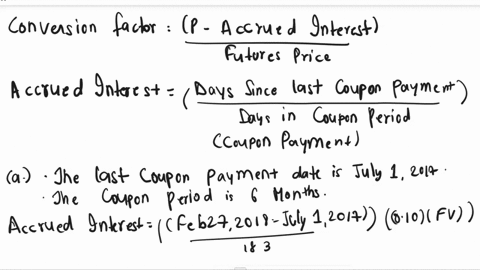 Conversion factor: (P - Accrued Interest)
Futures Price
Accrued Interest = (Days Since last Coupon Payment)
Days in Coupon Period
(Coupon Payment)
(a.) · The last Coupon payment date is July 1, 2017.
· The Coupon Period is 6 Months.
Accrued Interest = ((Feb 27, 2018 - July 1, 2017)) (0.10)(FV)
183